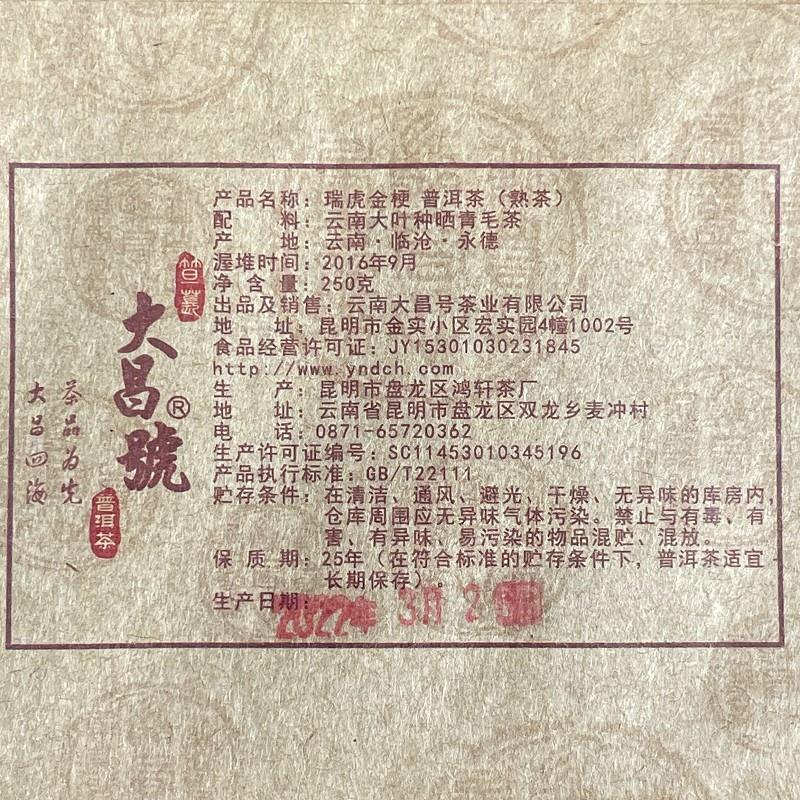 产品名称：瑞虎金梗 普洱茶（熟茶）
配　　料：云南大叶种晒青毛茶
产　　地：云南·临沧·永德
渥堆时间：2016年9月
净 含 量：250克
出品及销售：云南大昌号茶业有限公司
地　　址：昆明市金实小区宏实园4幢1002号
食品经营许可证：JY15301030231845
http://www.yndch.com
生　　产：昆明市盘龙区鸿轩茶厂
地　　址：云南省昆明市盘龙区双龙乡麦冲村
电　　话：0871-65720362
生产许可证编号：SC11453010345196
产品执行标准：GB/T22111
贮存条件：在清洁、通风、避光、干燥、无异味的库房内，
仓库周围应无异味气体污染。禁止与有毒、有
害、有异味、易污染的物品混贮、混放。
保 质 期：25年（在符合标准的贮存条件下，普洱茶适宜
长期保存）。
生产日期：2022年 3月 2
大昌號®
普洱茶
茶品为先
大昌四海